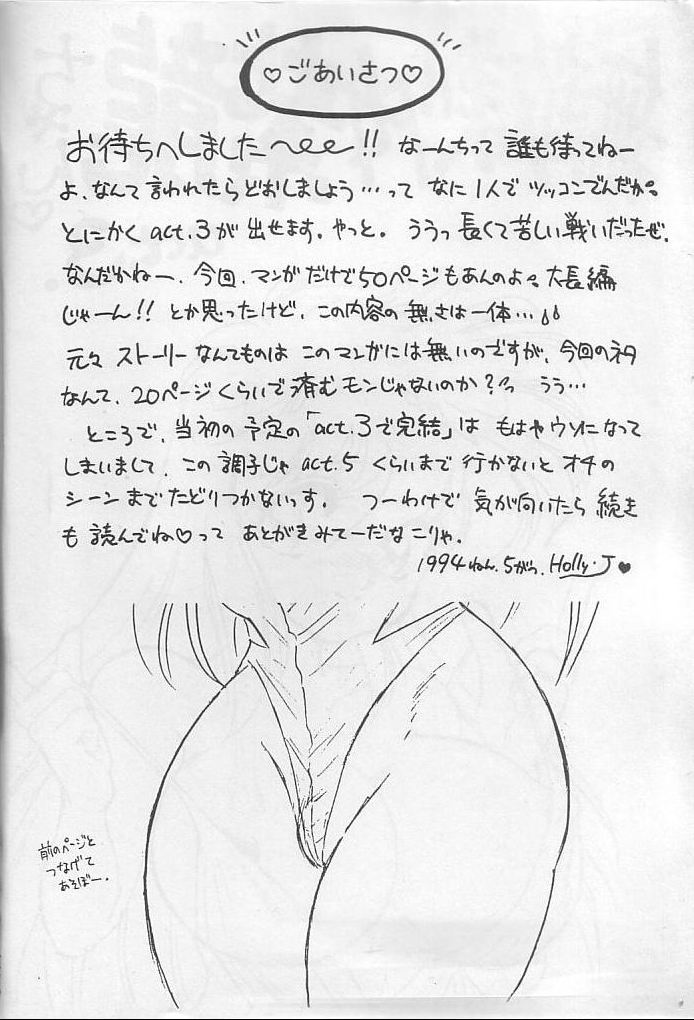 ♡ごあいさつ♡
お待ちへしました〜!! なーんちって 誰も待ってねー
よ、なんて言われたらどおしましょう…って なに1人で ツッコンでんだか。
とにかく act.3が 出せます。やっと。 ううっ 長くて苦しい戦いだったぜ。
なんだかねー、今回、マンガだけで50ページもあんのよ。大長編
じゃーん!! とか思ったけど、この内容の無さは一体…
元々 ストーリーなんてものは このマンガには無いのですが、今回のネタ
なんて、20ページくらいで済むモンじゃないのか? うう…
ところで、当初の予定の「act.3で完結」は もはやウソになって
しまいまして、この調子じゃ act.5 くらいまで行かないと オチの
シーンまでたどりつかないっす。 つーわけで 気が向いたら 続き
も 読んでね♡って あとがきみてーだな こりゃ。
1994ねん.5がつ. Holly・J♥
前のページと
つなげて
あそぼー。